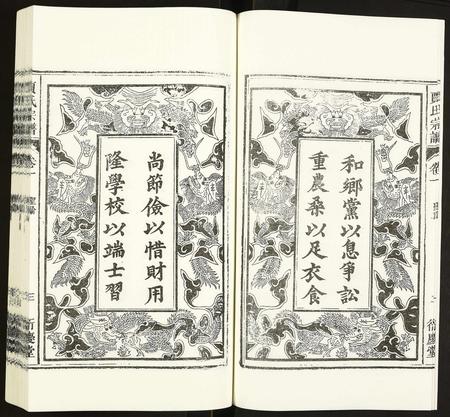 和鄉黨以息爭訟
重農桑以足衣食
尚節儉以惜財用
隆學校以端士習
氏宗譜
卷一